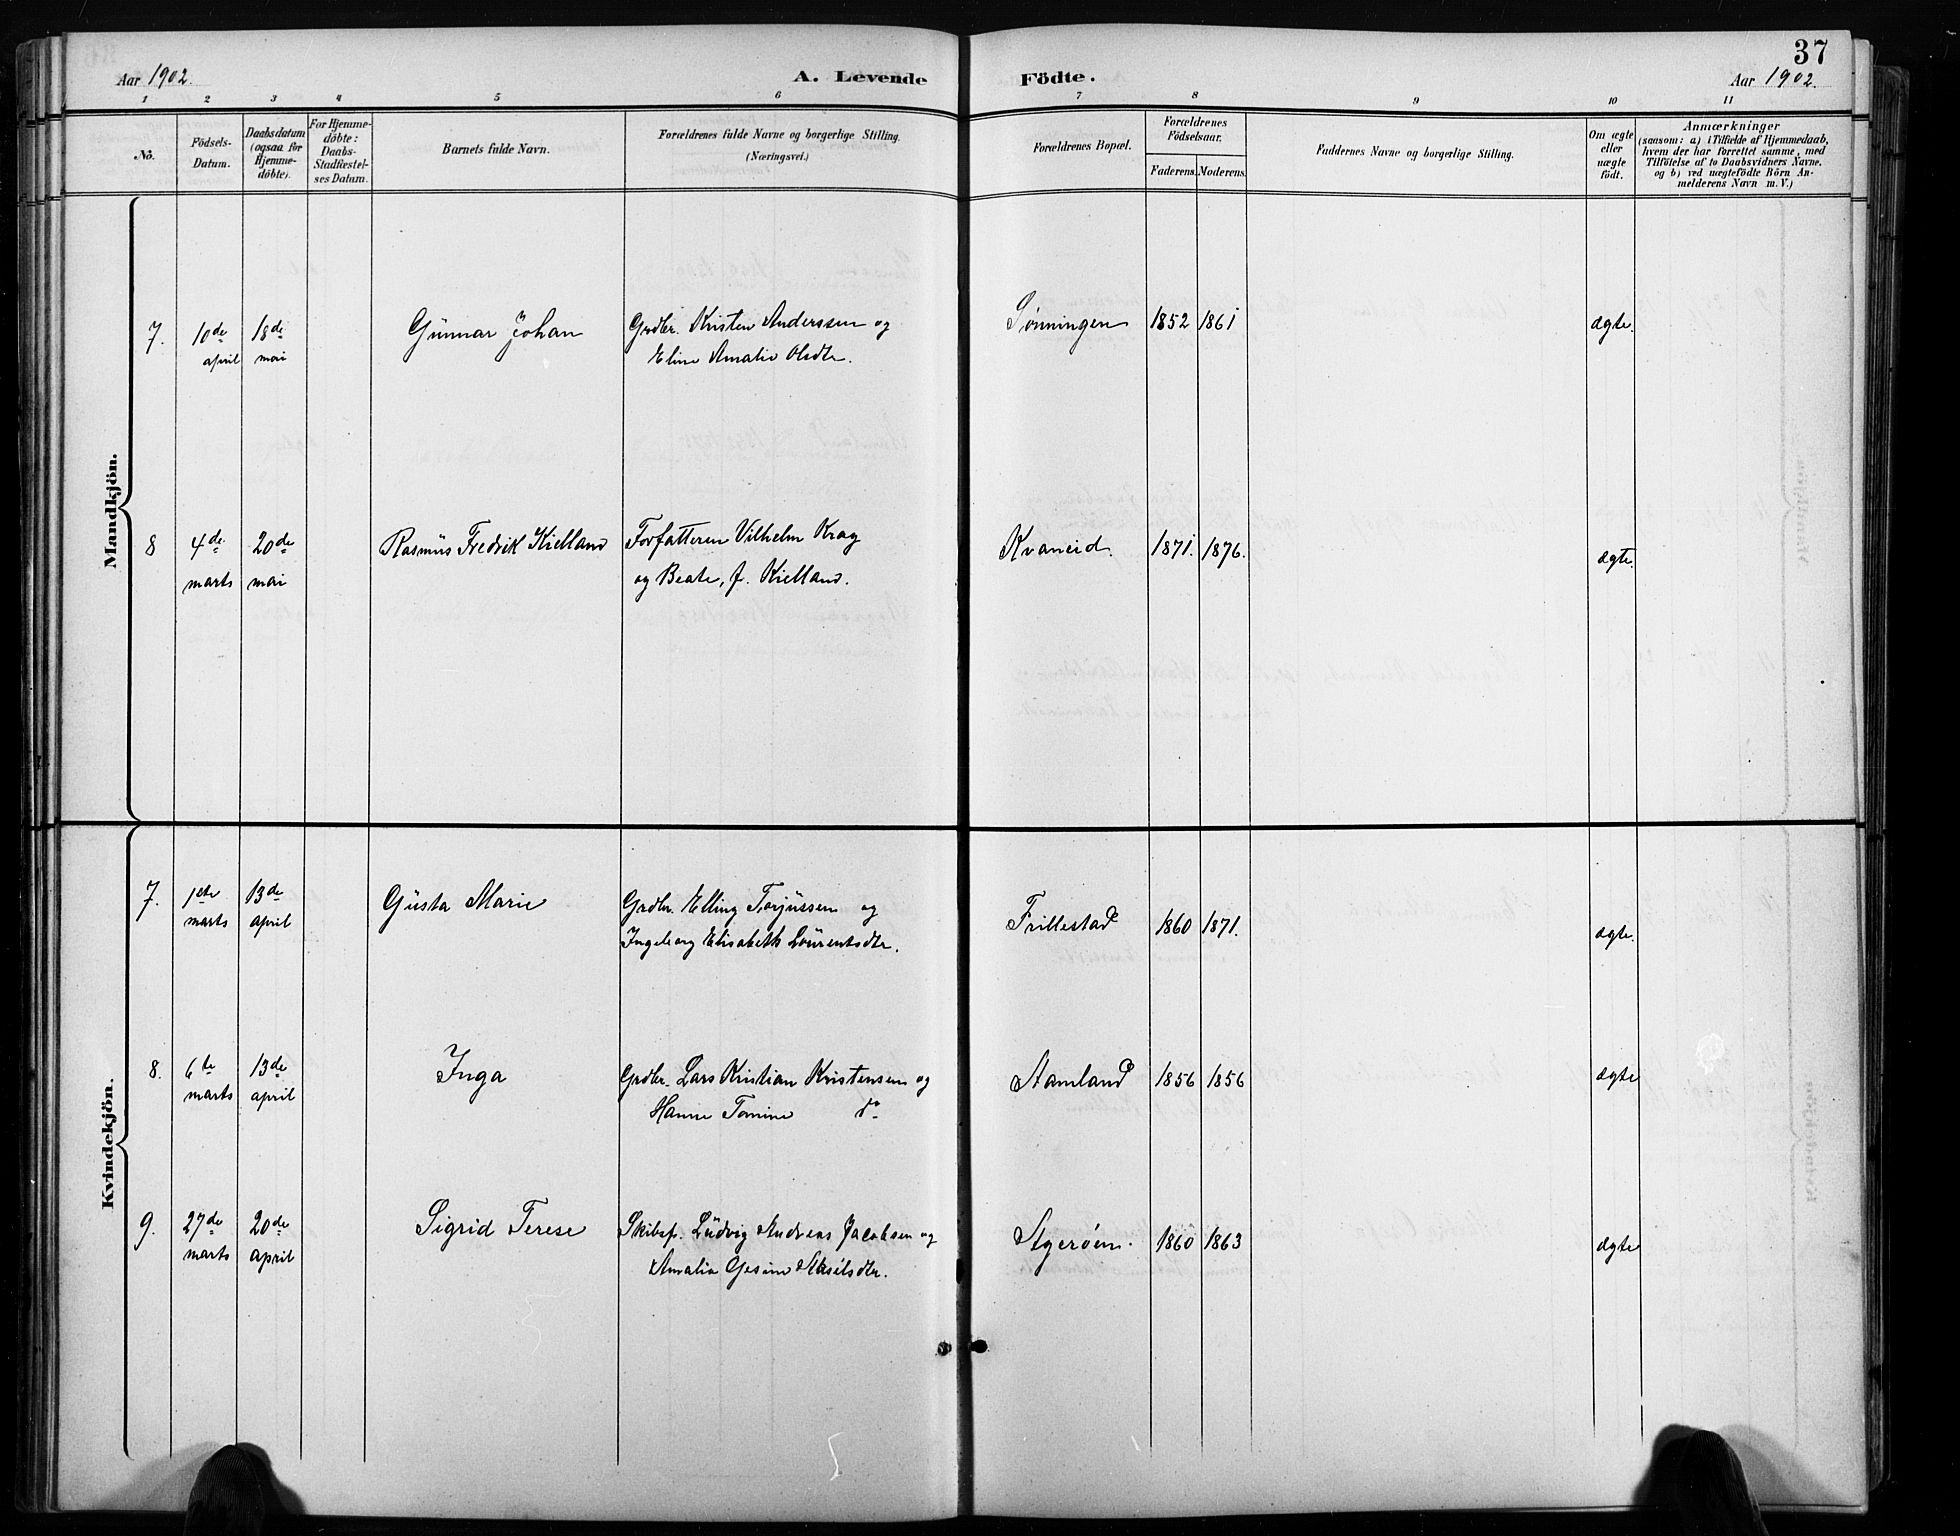 37
Aar 1902.
A. Levende Födte.
Aar 1902.
1 2 3 4 5 6 7 8 9 10 11
No.
Födsels-Datum.
Daabsdatum (ogsaa for Hjemmedöbte).
For Hjemmedöbte: Daabs-Stadfæstelses Datum.
Barnets fulde Navn.
Forældrenes fulde Navne og borgerlige Stilling.
(Næringsvei.)
Forældrenes Bopæl.
Forældrenes Födselsaar.
Faderens. Moderens.
Faddernes Navne og borgerlige Stilling.
Om ægte eller uægte født.
Anmærkninger
(saasom: a) i Tilfælde af Hjemmedaab, hvem der har forrettet samme, med Tilföielse af to Daabsvidners Navne, og b) ved uægtefödte Börn Anmelderens Navn m. V.)
Mandkjön.
7. 10de april 18de mai Gunnar Johan Grdbr. Kristen Anderssen og
Eline Amalie Olsdtr. Sønningen 1852 1861 ægte.
8 4de marts 20de mai Rasmus Fredrik Kielland Forfatteren Vilhelm Krag
og Beate, f. Kielland. Kvaneid. 1871. 1876. ægte.
Kvindekjön.
7. 1ste marts 13de april Gusta Marie Grdbr. Elling Torjussen og
Ingeborg Elisabeth Laurentsdtr. Frillestad 1860 1871. ægte.
8. 6te marts 13de april Inga Grdbr. Lars Kristian Kristensen og
Hanne Tomine do Aamland 1856 1856 ægte
9. 27de marts 20de april Sigrid Terese Skibsf. Ludvig Andreas Jacobsen og
Amalie Gesine Akselsdtr. Agerøen. 1860 1863 ægte